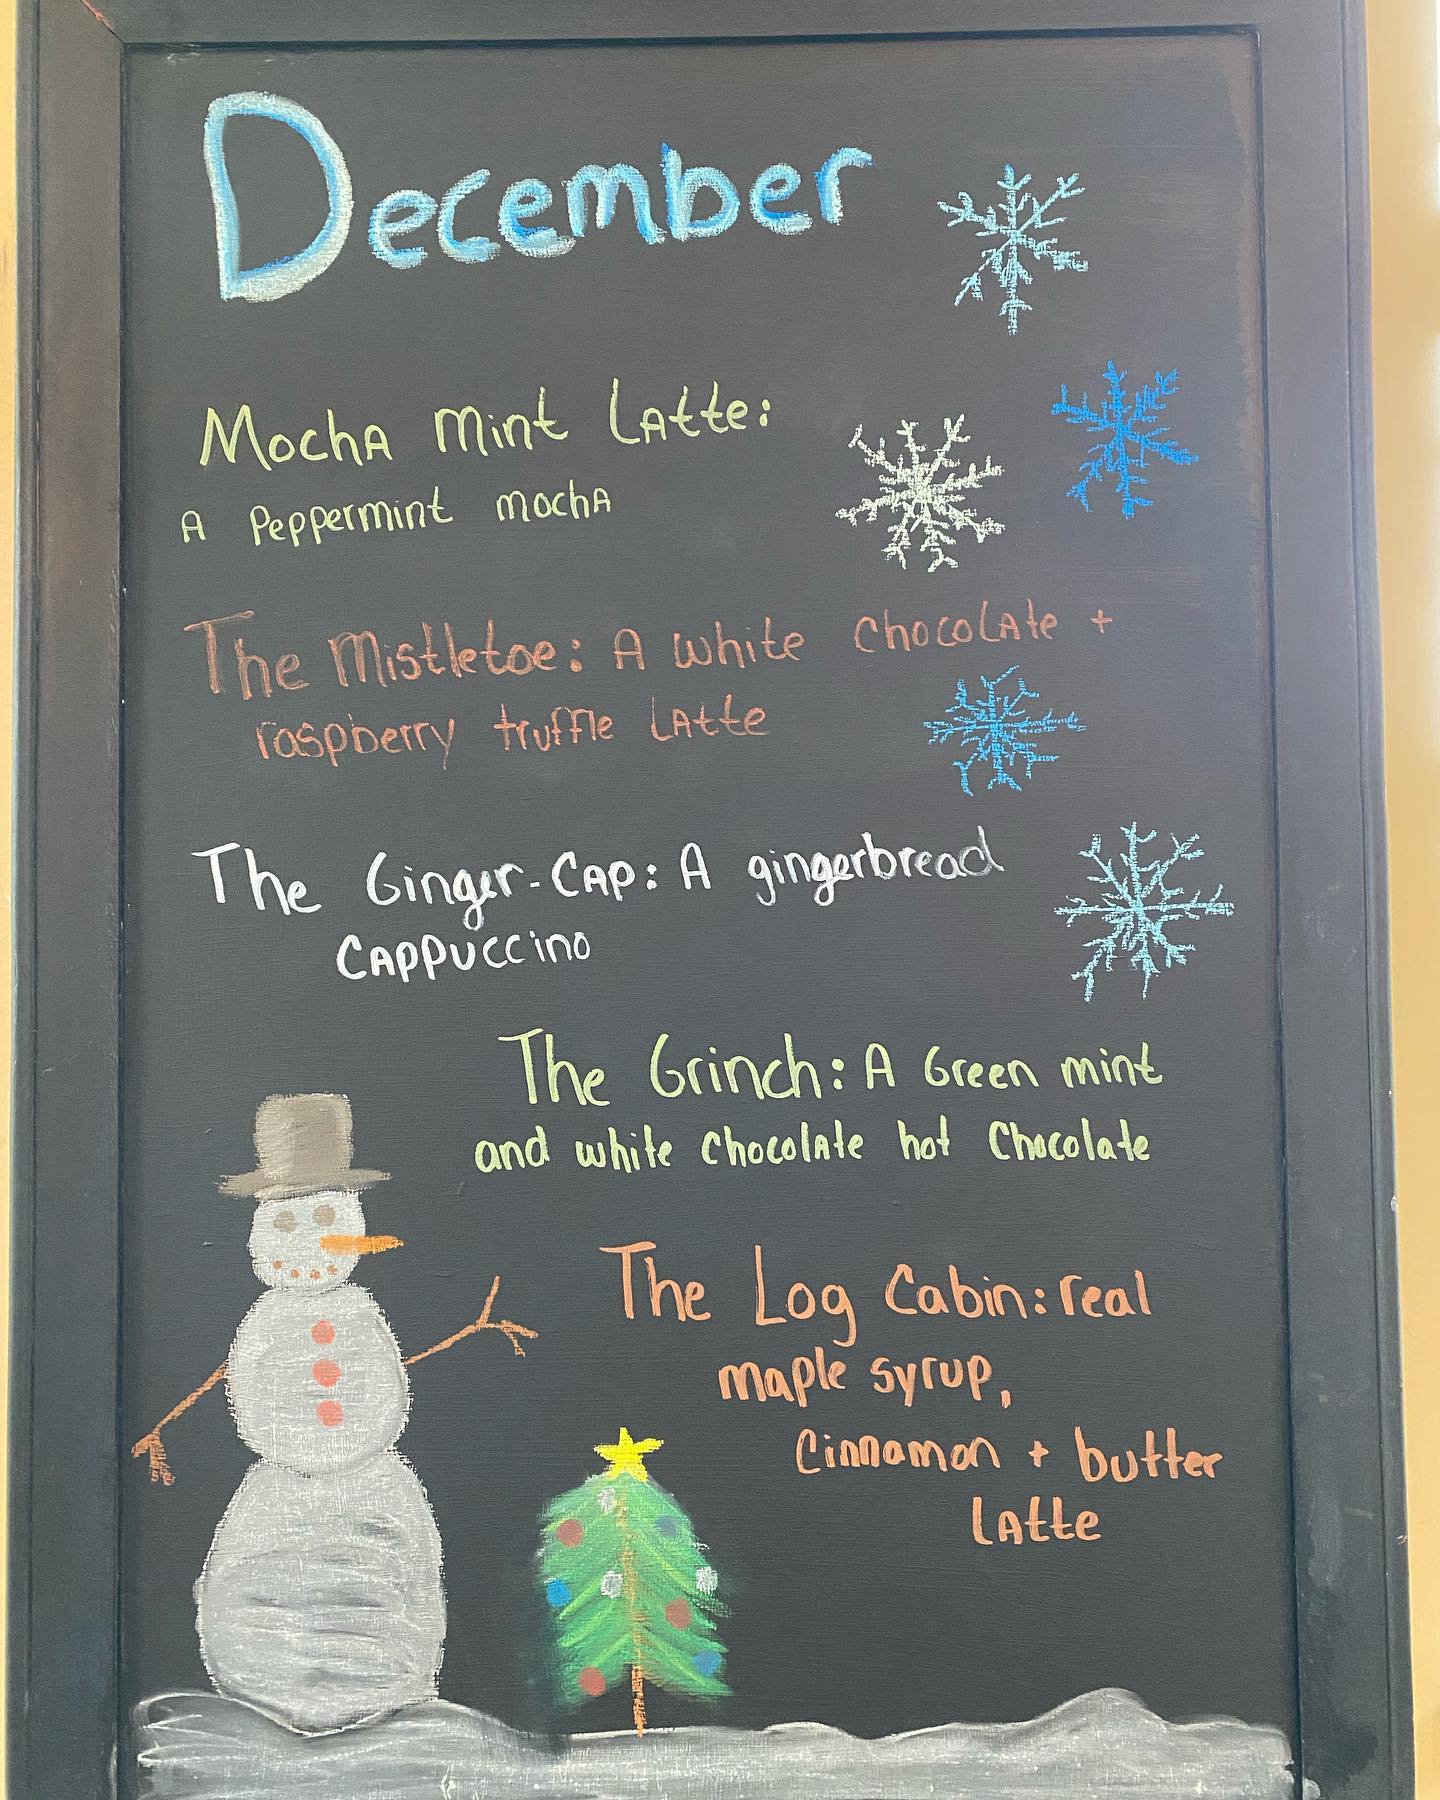 December
Mocha mint Latte:
A Peppermint mocha
The Mistletoe: A white Chocolate +
raspberry truffle Latte
The Ginger-Cap: A gingerbread
Cappuccino
The Grinch: A Green mint
and white Chocolate hot Chocolate
The Log Cabin: real
maple syrup,
Cinnamon + butter
Latte